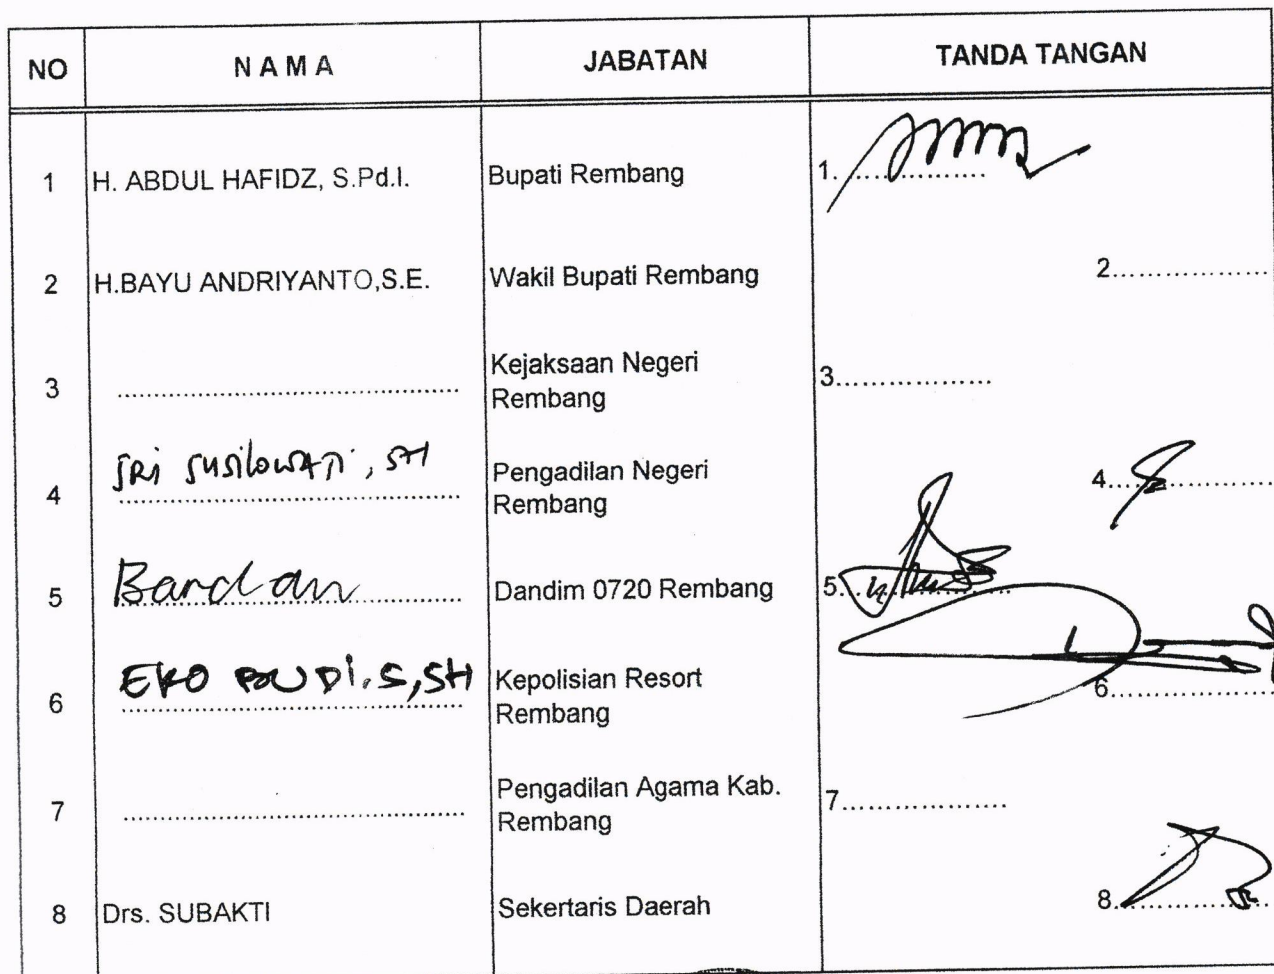 NO N A M A JABATAN TANDA TANGAN
1 H. ABDUL HAFIDZ, S.Pd.I. Bupati Rembang 1.................
2 H.BAYU ANDRIYANTO,S.E. Wakil Bupati Rembang 2.................
3 ................................................ Kejaksaan Negeri
Rembang 3.................
4 SRI SUSILOWATI, SH Pengadilan Negeri
Rembang 4.................
5 Bardan Dandim 0720 Rembang 5.................
6 EKO BUDI.S,SH Kepolisian Resort
Rembang 6.................
7 ................................................ Pengadilan Agama Kab.
Rembang 7.................
8 Drs. SUBAKTI Sekertaris Daerah 8.................